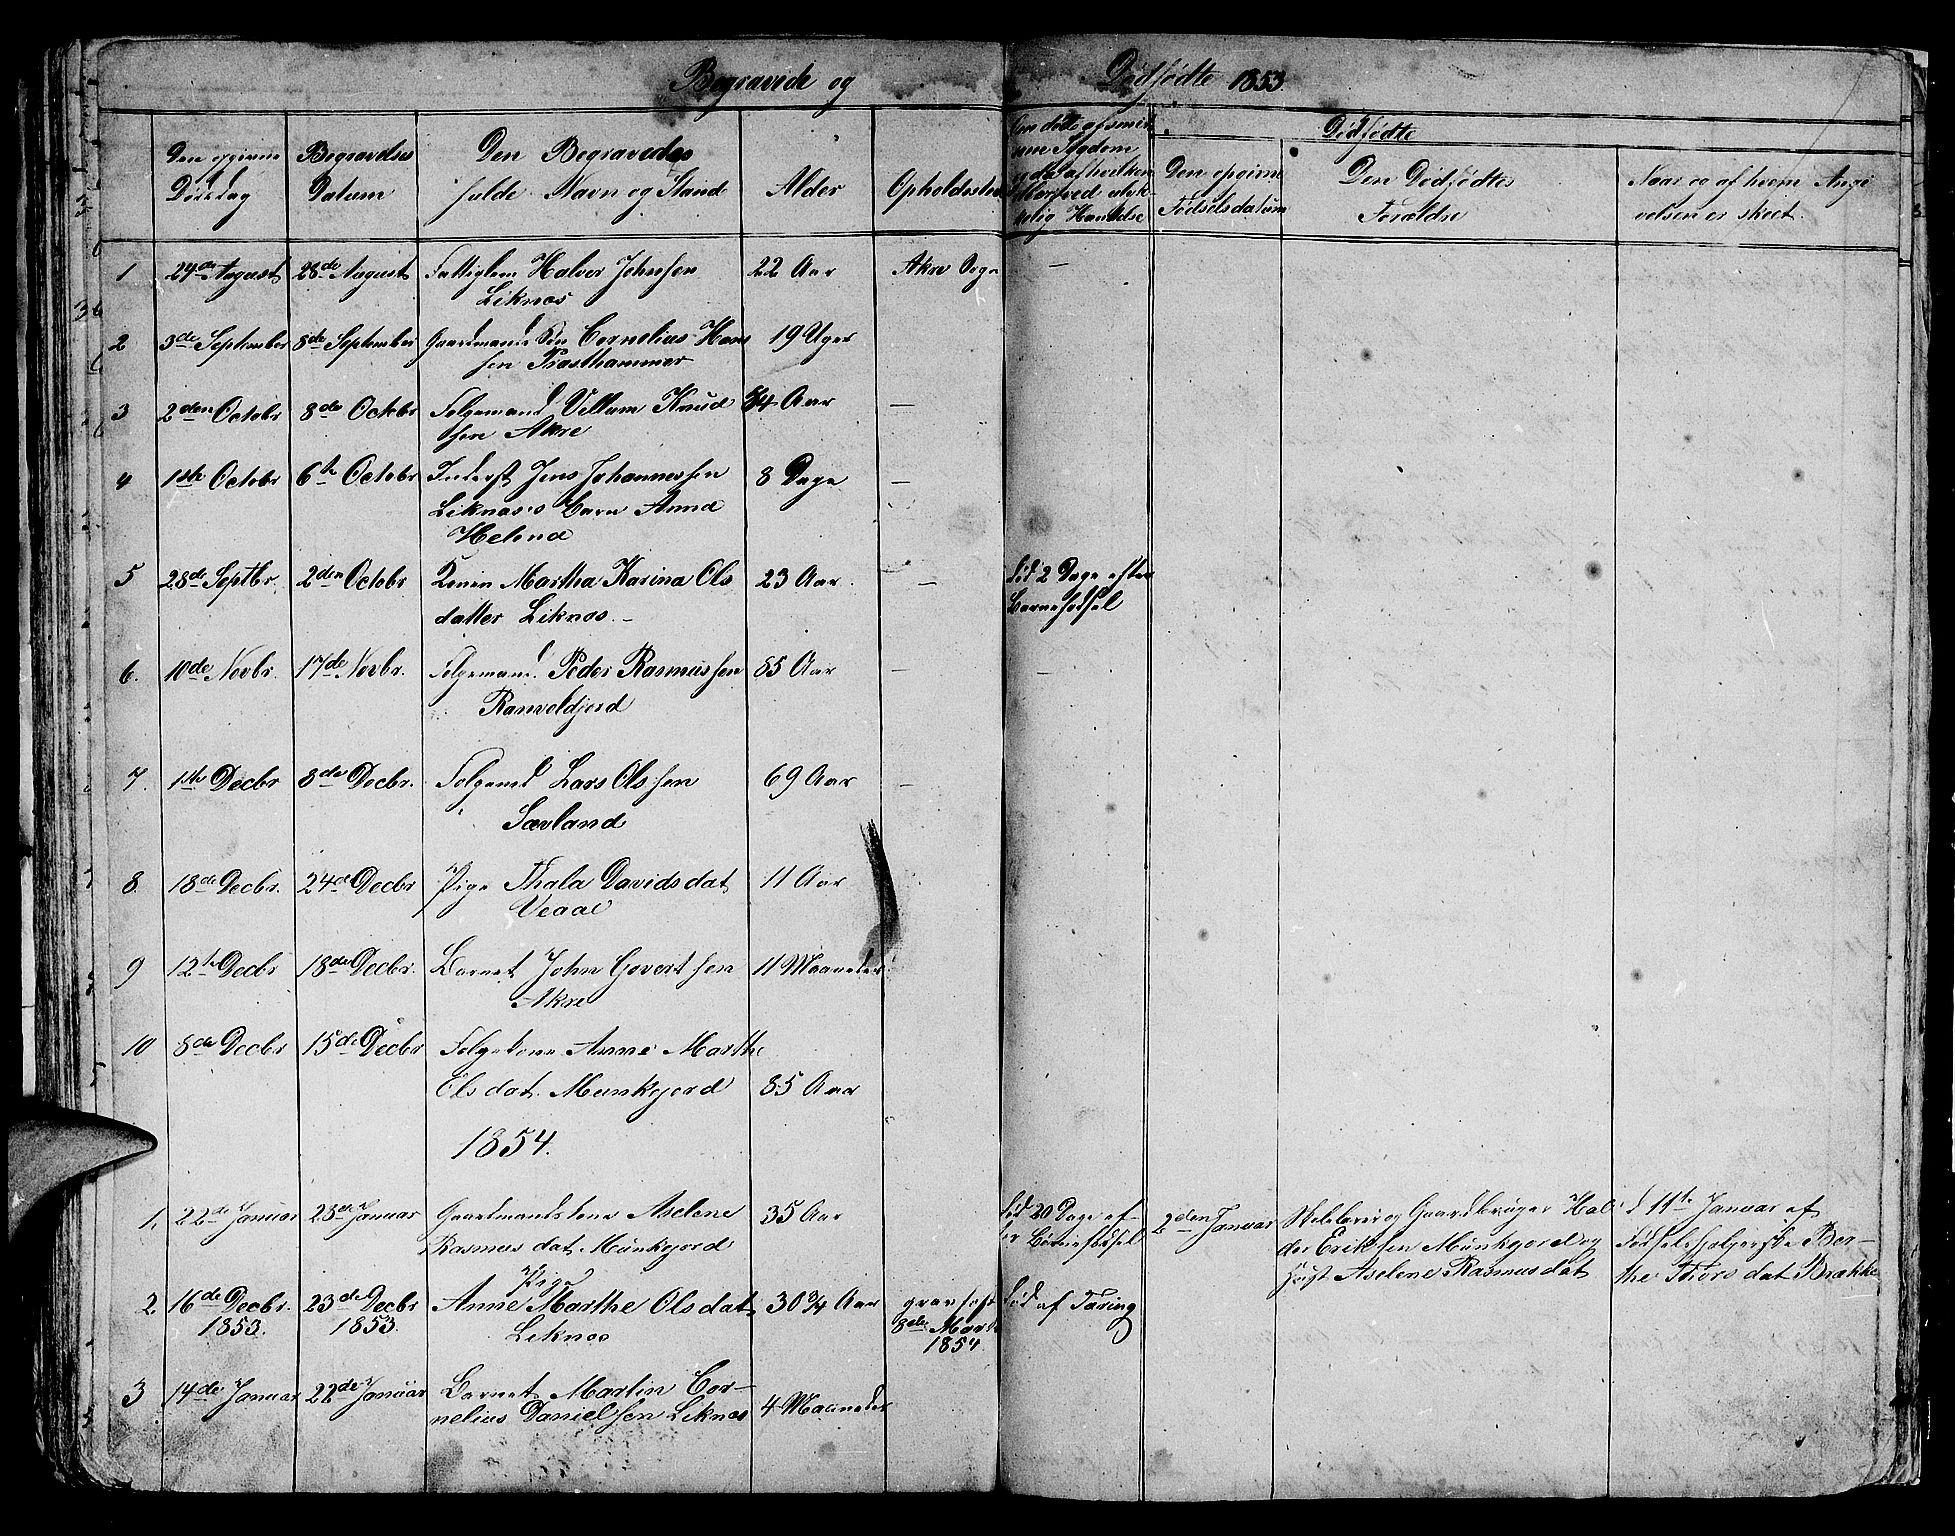 Begravede og Dødfødte 1853.
Den opgivne Dødsdag
Begravelses Datum
Den Begravedes fulde Navn og Stand
Alder
Opholdssted
Om død af smitsom Sygdom
Dødfødte
Den opgivne Fødselsdatum
Den Dødfødtes Forældre
Naar og af hvem Angivelsen er skeet.
1 24de August 28de August Fattiglem Halvor Johnsen 22 Aar Akre Sogn —
Liknæs
2 3de September 8de September Gaardmands Søn Cornelius Hans 19 Uger
sen Præsthammer
3 2den Octobr 8de Octobr Folgemand Villum Knud Aar —
sen Akre
4 1ste Octobr 6te Octobr Inderst Jens Johannessen 8 Dage —
Liknæs's Barn Anna
Helena
5 28de Septbr. 2den Octobr Konen Martha Karina Ols 23 Aar. — død 2 Dage efter
datter Liknæs. — Barnefødsel
6. 10de Novbr. 17de Novbr. Folgemand Peder Rasmussen 85 Aar — —
7. 1ste Decbr 8de Decbr. Folgemd Lars Olssen 69 Aar —
Sævland
8. 18de Decbr. 24de Decbr Pige Thala Davidsdat 11 Aar
Veaae
9 12te Decbr 18de Decbr. Barnet John Govertsen 11 Maaneder
Akre
10 8de Decbr 15de Decbr Folgekone Anne Marthe
Olsdat. Munkejord 85 Aar
1854.
1. 22de Januar 28de Januar Gaardmandskone Aselene 35 Aar død 20 Dage ef- 2den Januar Gaardbruger Hal d 11te Januar af
Rasmusdat Munkejord ter Barnefødsel dor Eriksen Munkejord og Fødselshjelperske Ber-
Aselene Rasmusdat the Thorsdat Brække
Pige
2. 16de Decbr. 23de Decbr Anne Marthe Olsdat 30 3/4 Aar gravfæst død af Tæring
1853. 1853. Liknæs 8de Marts
1854
3 14de Januar 22de Januar Barnet Martin Cor-
nelius Danielsen Liknæs 4 Maaneder